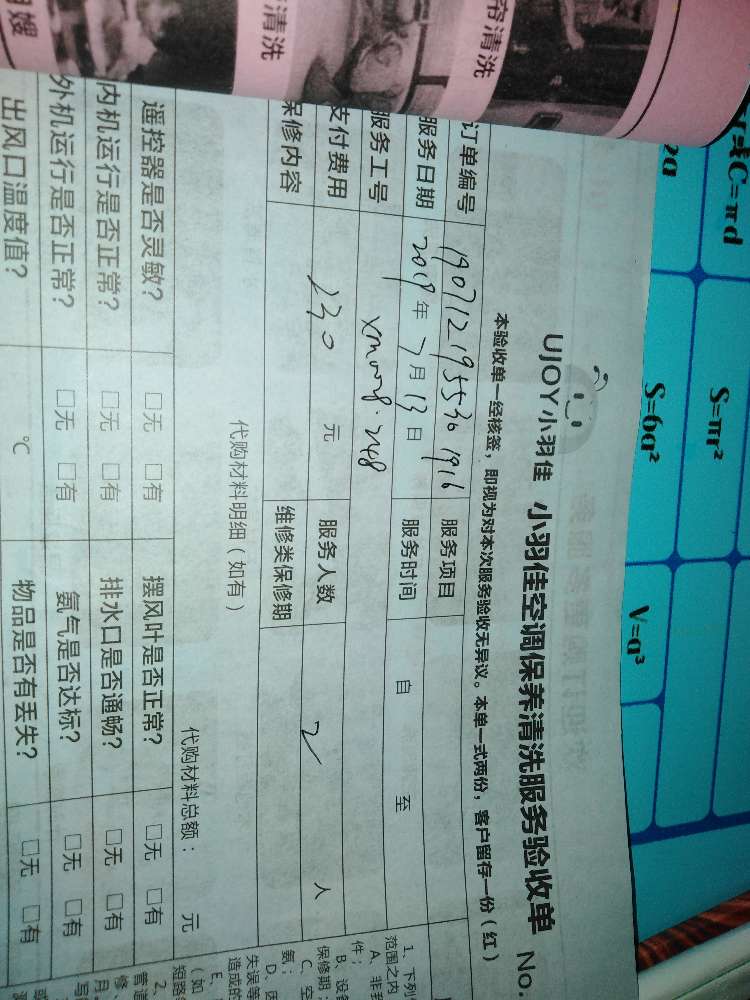 帘清洗
清洗
嫂
C=πd
S=πr²
2a
S=6a²
V=a³
UJOY小羽佳 小羽佳空调保养清洗服务验收单 No.
本验收单一经核签，即视为对本次服务验收无异议。本单一式两份，客户留存一份（红）
订单编号 190712195530 1916 服务项目
服务日期 2019年7月13日 服务时间 自 至
服务工号
支付费用 230 元 服务人数 2 人
保修内容 维修类保修期
代购材料明细（如有） 代购材料总额： 元
遥控器是否灵敏？ □无 □有 摆风叶是否正常？ □无 □有
内机运行是否正常？ □无 □有 排水口是否通畅？ □无 □有
外机运行是否正常？ □无 □有 氨气是否达标？ □无 □有
出风口温度值？ ℃ 物品是否有丢失？ □无 □有
1、下列
范围之内
A、非我
件；
B、设备
保修期；
C、空
氨；
D、因
失误等
造成的
E、
（如
短路
2、
管道
修、
月。